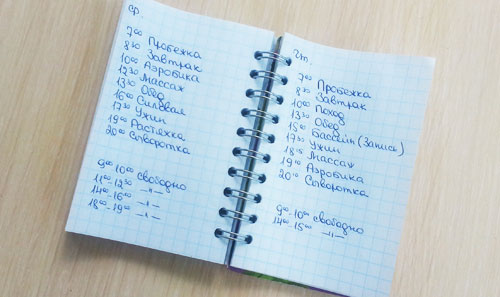 ср.
7⁰⁰ Пробежка
8³⁰ Завтрак
10⁰⁰ Аэробика
12³⁰ Массаж
13³⁰ Обед
16⁰⁰ Силовая
17³⁰ Ужин
19⁰⁰ Растяжка
20⁰⁰ Сыворотка
9⁰⁰-10⁰⁰ свободно
11⁰⁰-12³⁰ —"—
14⁰⁰-16⁰⁰ —"—
18⁰⁰-19⁰⁰ —"—
Чт.
7⁰⁰ Пробежка
8³⁰ Завтрак
10⁰⁰ Поход
13³⁰ Обед
15⁰⁰ Бассейн (Запись)
17³⁰ Ужин
18¹⁵ Массаж
19⁰⁰ Аэробика
20⁰⁰ Сыворотка
9⁰⁰-10⁰⁰ свободно
14⁰⁰-15⁰⁰ —"—